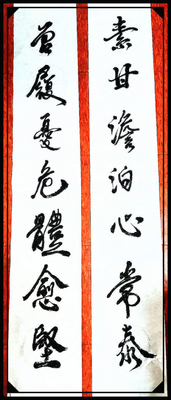 素甘澹泊心常泰
曾履憂危體愈堅